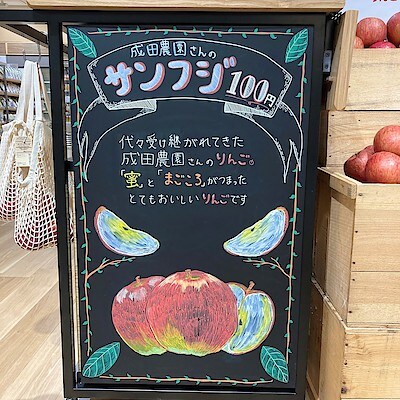 成田農園さんの
サンフジ100円
代々受け継がれてきた
成田農園さんのりんご。
「蜜」と「まごころ」がつまった
とてもおいしいりんごです